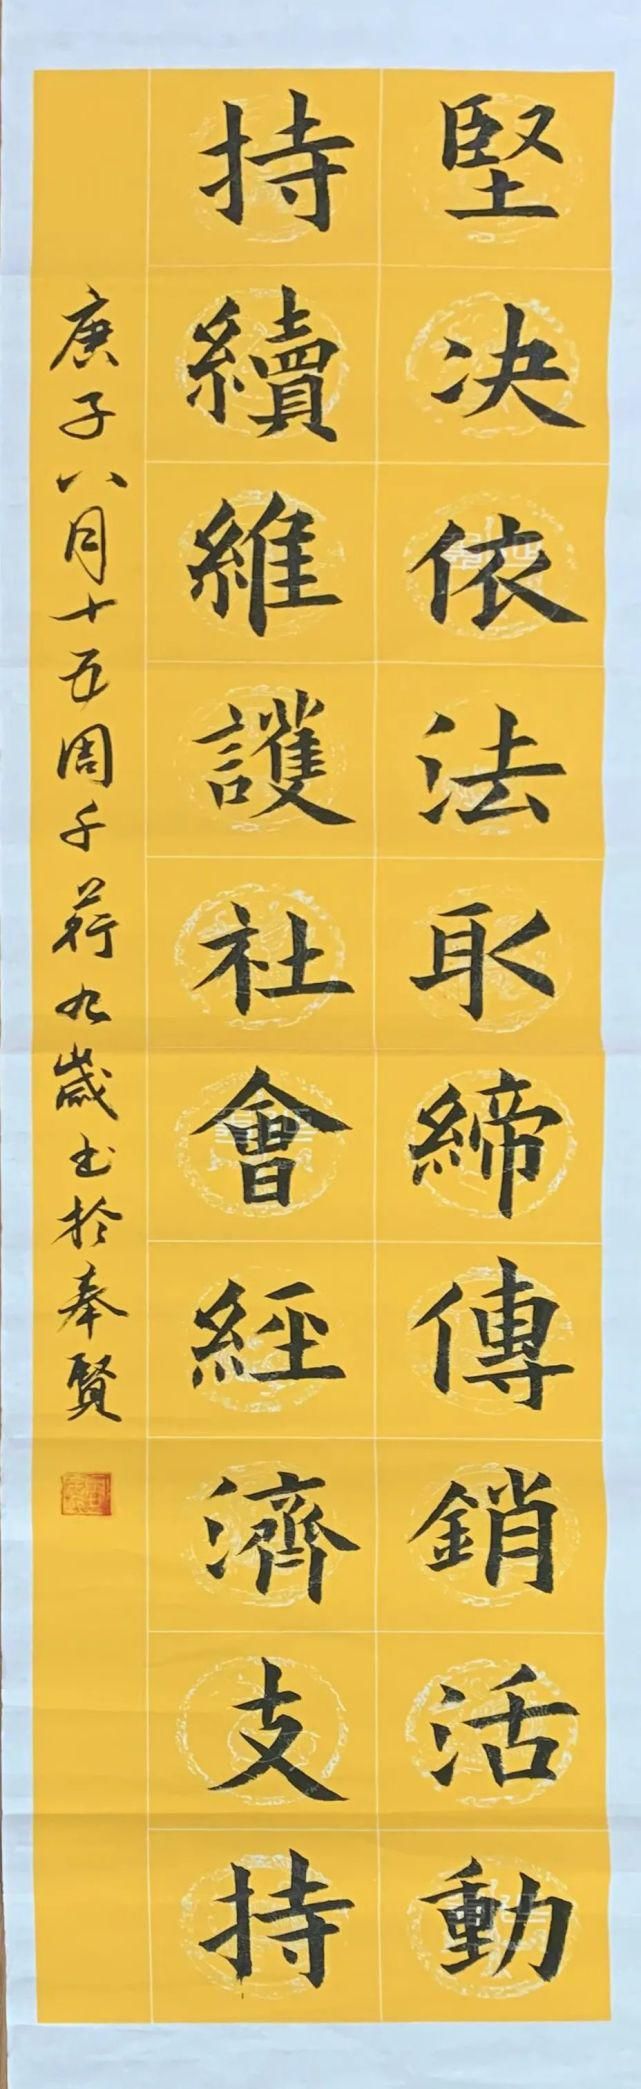 堅决依法取締傳銷活動
持續維護社會經濟支持
庚子八月十五周千荇九歲书於奉賢